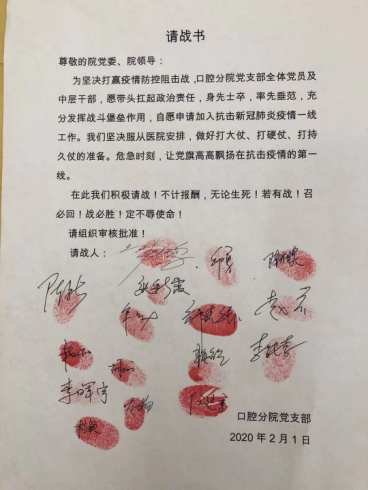 请战书
尊敬的院党委、院领导：
为坚决打赢疫情防控阻击战，口腔分院党支部全体党员及
中层干部，愿带头扛起政治责任，身先士卒，率先垂范，充
分发挥战斗堡垒作用，自愿申请加入抗击新冠肺炎疫情一线
工作。我们坚决服从医院安排，做好打大仗、打硬仗、打持
久仗的准备。危急时刻，让党旗高高飘扬在抗击疫情的第一
线。
在此我们积极请战！不计报酬，无论生死！若有战！召
必回！战必胜！定不辱使命！
请组织审核批准！
请战人：
李晖宇
口腔分院党支部
2020年2月1日